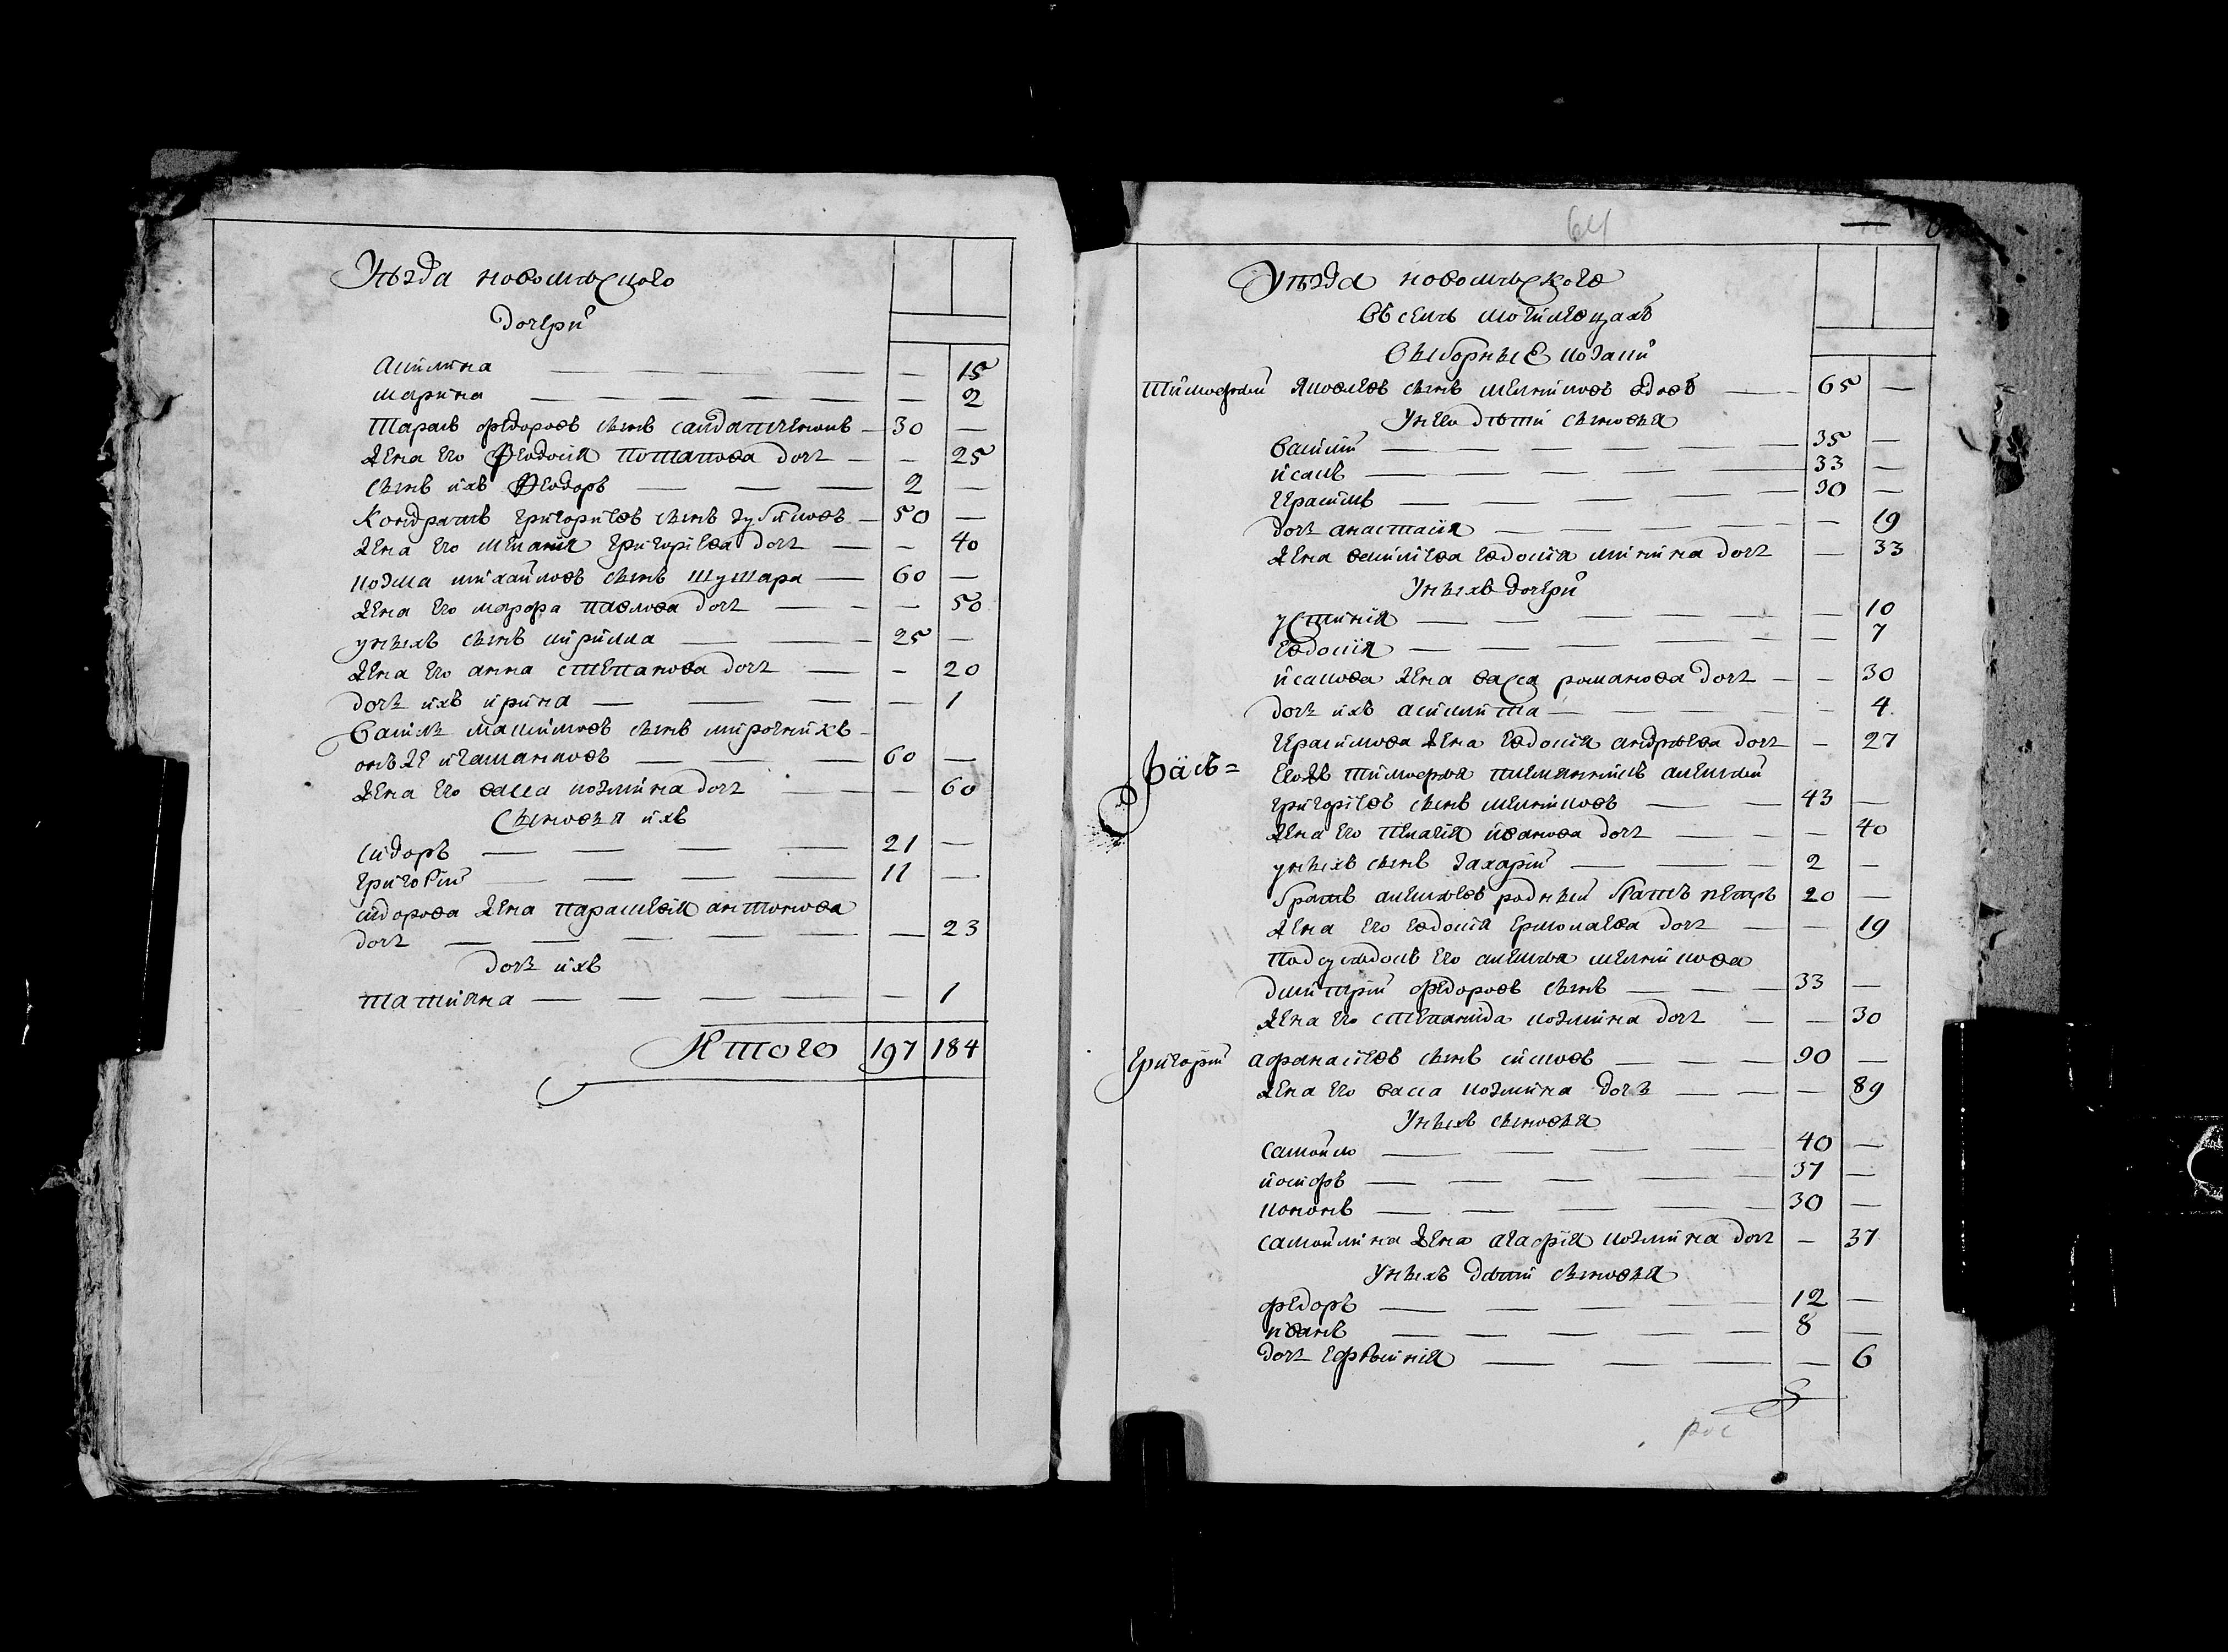 Уѣзда новомлѣского
дочери
Акилина — — — — — 15
марина — — — — — — 2
Тарасъ федоровъ сынъ сандатченокъ — 30 —
жена его Феодосия потапова дочь — — 25
сынъ ихъ Феодоръ — — — 2 —
Кондратъ григориевъ сынъ зубиковъ — 50 —
жена его мелания григориева дочь — — 40
козма михайловъ сынъ шушара — 60 —
жена его марфа павлова дочь — — — 50
уныхъ сынъ кирилла — — — 25 —
жена его анна степанова дочь — — 20
дочь ихъ ирина — — — — — 1
Василь максимовъ сынъ мирочникъ
онъ же игатанковъ — — — 60 —
жена его васса козмина дочь — — — 60
Сыновья ихъ
сидоръ — — — — 21 —
григорий — — — — 11 —
сидорова жена парасковия антонова
дочь — — — — — — 23
дочь ихъ
татияна — — — — — — 1
Итого 197 184
64
Уѣзда новомлѣского
Въ селѣ
выборные козаки
Тимофей Яковлевъ сынъ мелниковъ вдовъ — — 65 —
Унего дѣти сыновья
василий — — — — — 35 —
исакъ — — — — — 33 —
герасимъ — — — — — 30 —
дочь анастасия — — — — — 19
жена василиева евдокия минина дочь — 33
Унихъ дочери
устиния — — — — — 10
евдокия — — — — — 7
исакова жена васса романова дочь — — 30
дочь ихъ акилина — — — — — 4
герасимова жена евдокия андреева дочь — 27
егожъ тимофея племянникъ алексѣй
григориевъ сынъ мелниковъ — — 43 —
жена его пелагия иванова дочь — — — 40
унихъ сынъ захарий — — — 2 —
братъ алексѣевъ родный братъ петръ 20 —
жена его евдокия ермолаева дочь — — 19
подсуседокъ его алексѣя мелникова
дмитрий федоровъ сынъ — — — 33 —
жена его степанида козмина дочь — — 30
Григорий афанасиевъ сынъ — — — 90 —
жена его васса козмина дочь — — — 89
Унихъ сыновья
самойло — — — — 40 —
иосифъ — — — — — 37 —
кононъ — — — — — 30 —
самойлина жена агафия козмина дочь — 37
Унихъ дѣти сыновья
федоръ — — — — 12 —
иванъ — — — — — 8 —
дочь ефросиния — — — — 6
рос